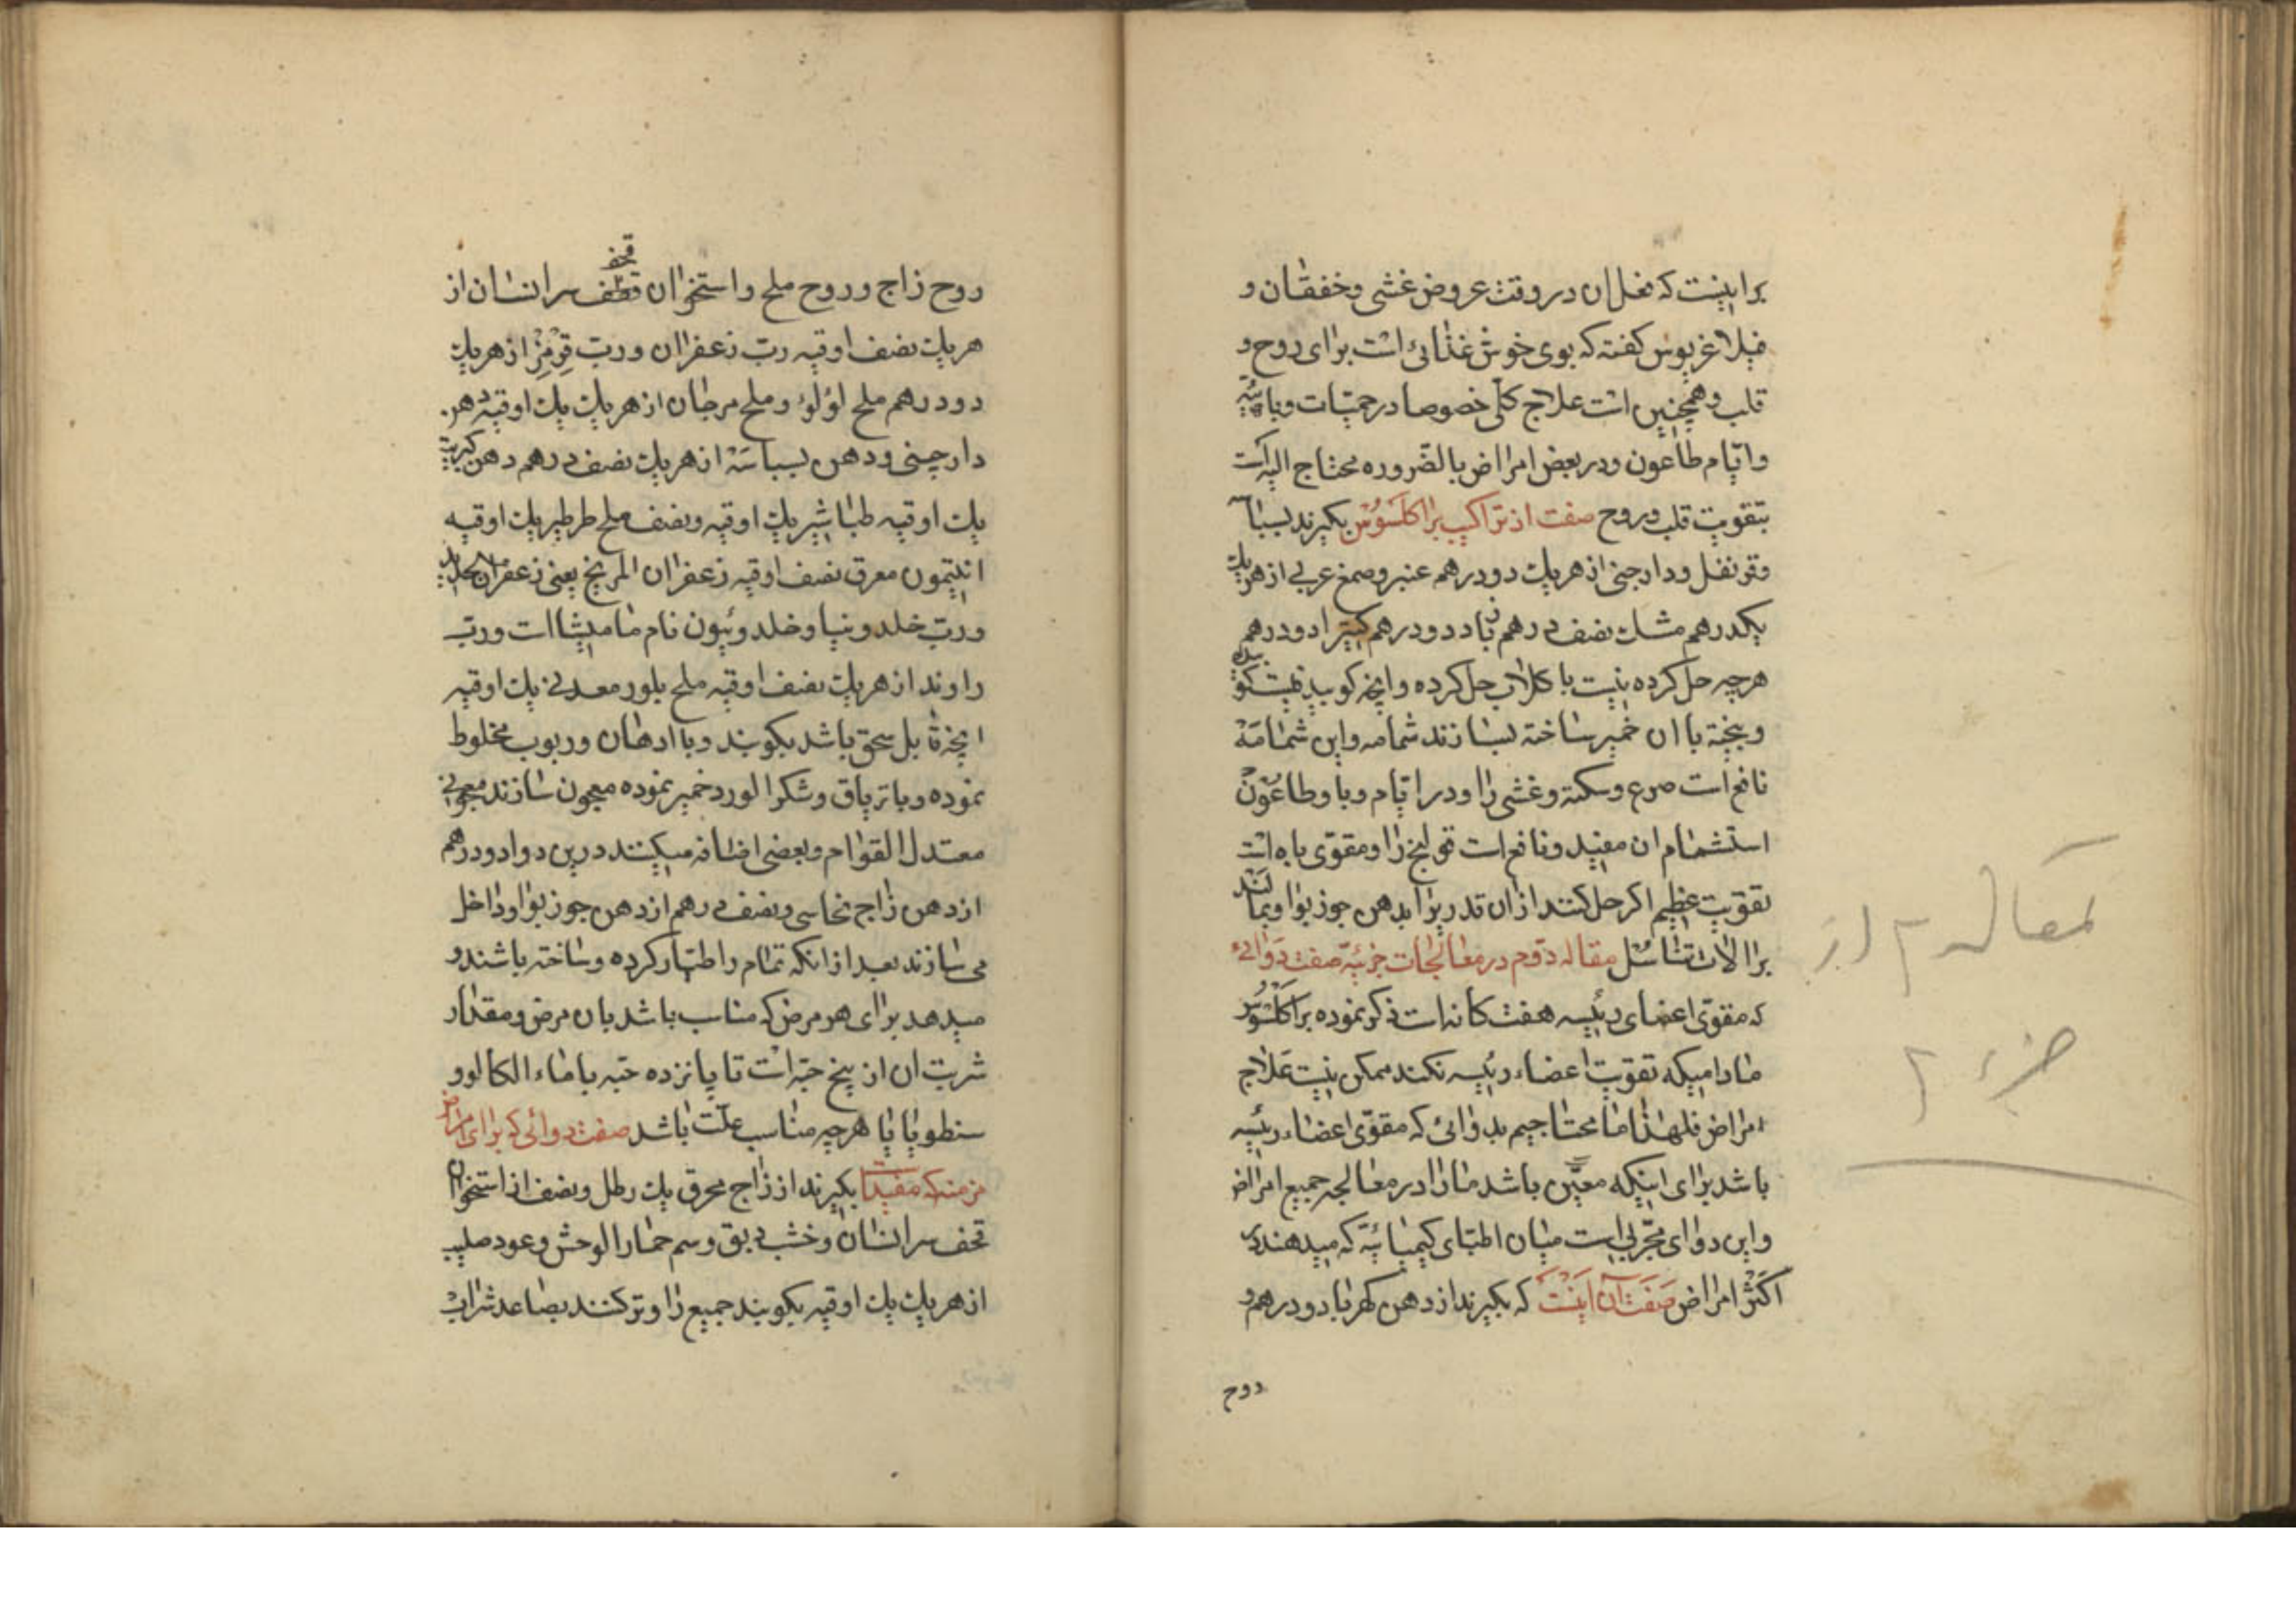 براینست که نحل ان در وقت عروض غشی وخفقان و
فیلاغریوس کفته که بوی خوش غذائی است برای روح و
قلب وهمچنین است علاج کلّی خصوصا درحمیّات وبائیّه
وایّام طاعون ودر بعض امراض بالضّروره محتاج الیه است
بتقویت قلب وروح صفت از تراکیب براکلسوس بکیرند بسباسه
وقرنفل ودارچینی از هریك دودرهم عنبر وصمغ عربی از هریك
یکدرهم مشك نصف درهم زباد دودرهم کتیرا دودرهم
هرچه حل کرده نیست با کلاب حل کرده وانچه کوبیدنیست کوبیده
وبیخته با ان خمیر ساخته بسازند شمامه واین شمامّه
نافع است صرع وسکته وغشی را ودر ایّام وبا وطاعون
استشمام ان مفید ونافع است قولنج را ومقوی باه است
تقویت عظیم اکر حل کنند از ان قدریرا بدهن جوزبوا وبمالند
برالات تناسل مقاله دوّم در معالجات جزئیّه صفت دوائی
که مقوّی اعضای رئیسه هفت کانه است ذکر نموده براکلسوس
مادامیکه تقویت اعضاء رئیسه نکند ممکن نیست علاج
امراض فلهذا ما محتاجیم بدوائی که مقوّی اعضاء رئیسه
باشد برای اینکه معیّن باشد مارا در معالجه جمیع امراض
واین دوای مجرّبی است میان اطبّای کیمیائیّه که میدهند در
اکثر امراض صفت آن اینست که بکیرند از دهن کهربا دودرهم و
روح
مقاله ۲ از
جزء ۲
قحف
روح زاج وروح ملح واستخوان سر انسان از
هریك نصف اوقیه ربّ زعفران وربّ قرمز از هریك
دودرهم ملح لؤلؤ وملح مرجان از هریك یك اوقیه دهن
دارچینی ودهن بسباسه از هریك نصف درهم دهن کبریت
یك اوقیه طباشیر یك اوقیه ونصف ملح طرطیر یك اوقیه
انتیمون معرق نصف اوقیه زعفران المریخ یعنی زعفران الحدید
وربّ خلدونیا وخلدوئیون نام مامیثا است وربّ
راوند از هریك نصف اوقیه ملح بلور معدنی یك اوقیه
انچه قابل سحق باشد بکوبند وبا ادهان وربوب مخلوط
نموده وبا تریاق وشکر الورد خمیر نموده معجون سازند معجونی
معتدل القوام وبعضی اضافه میکنند درین دوا دودرهم
از دهن زاج نحاسی ونصف درهم از دهن جوزبوا وداخل
می سازند بعد از انکه تمام را طیّار کرده وساخته باشند و
میدهد برای هر مرض که مناسب باشد بان مرض ومقدار
شربت ان از پنج حبّه است تا پانزده حبّه با ماء الکالوو
سنطوپاپا هرچه مناسب علّت باشد صفت دوائی که برای امراض
مزمنه مفید است بکیرند از زاج محرق یك رطل ونصف از استخوان
قحف سر انسان وخشب دبق وسم حمار الوحش وعود صلیب
از هریك یك اوقیه بکوبند جمیع را وتر کنند بصاعد شراب